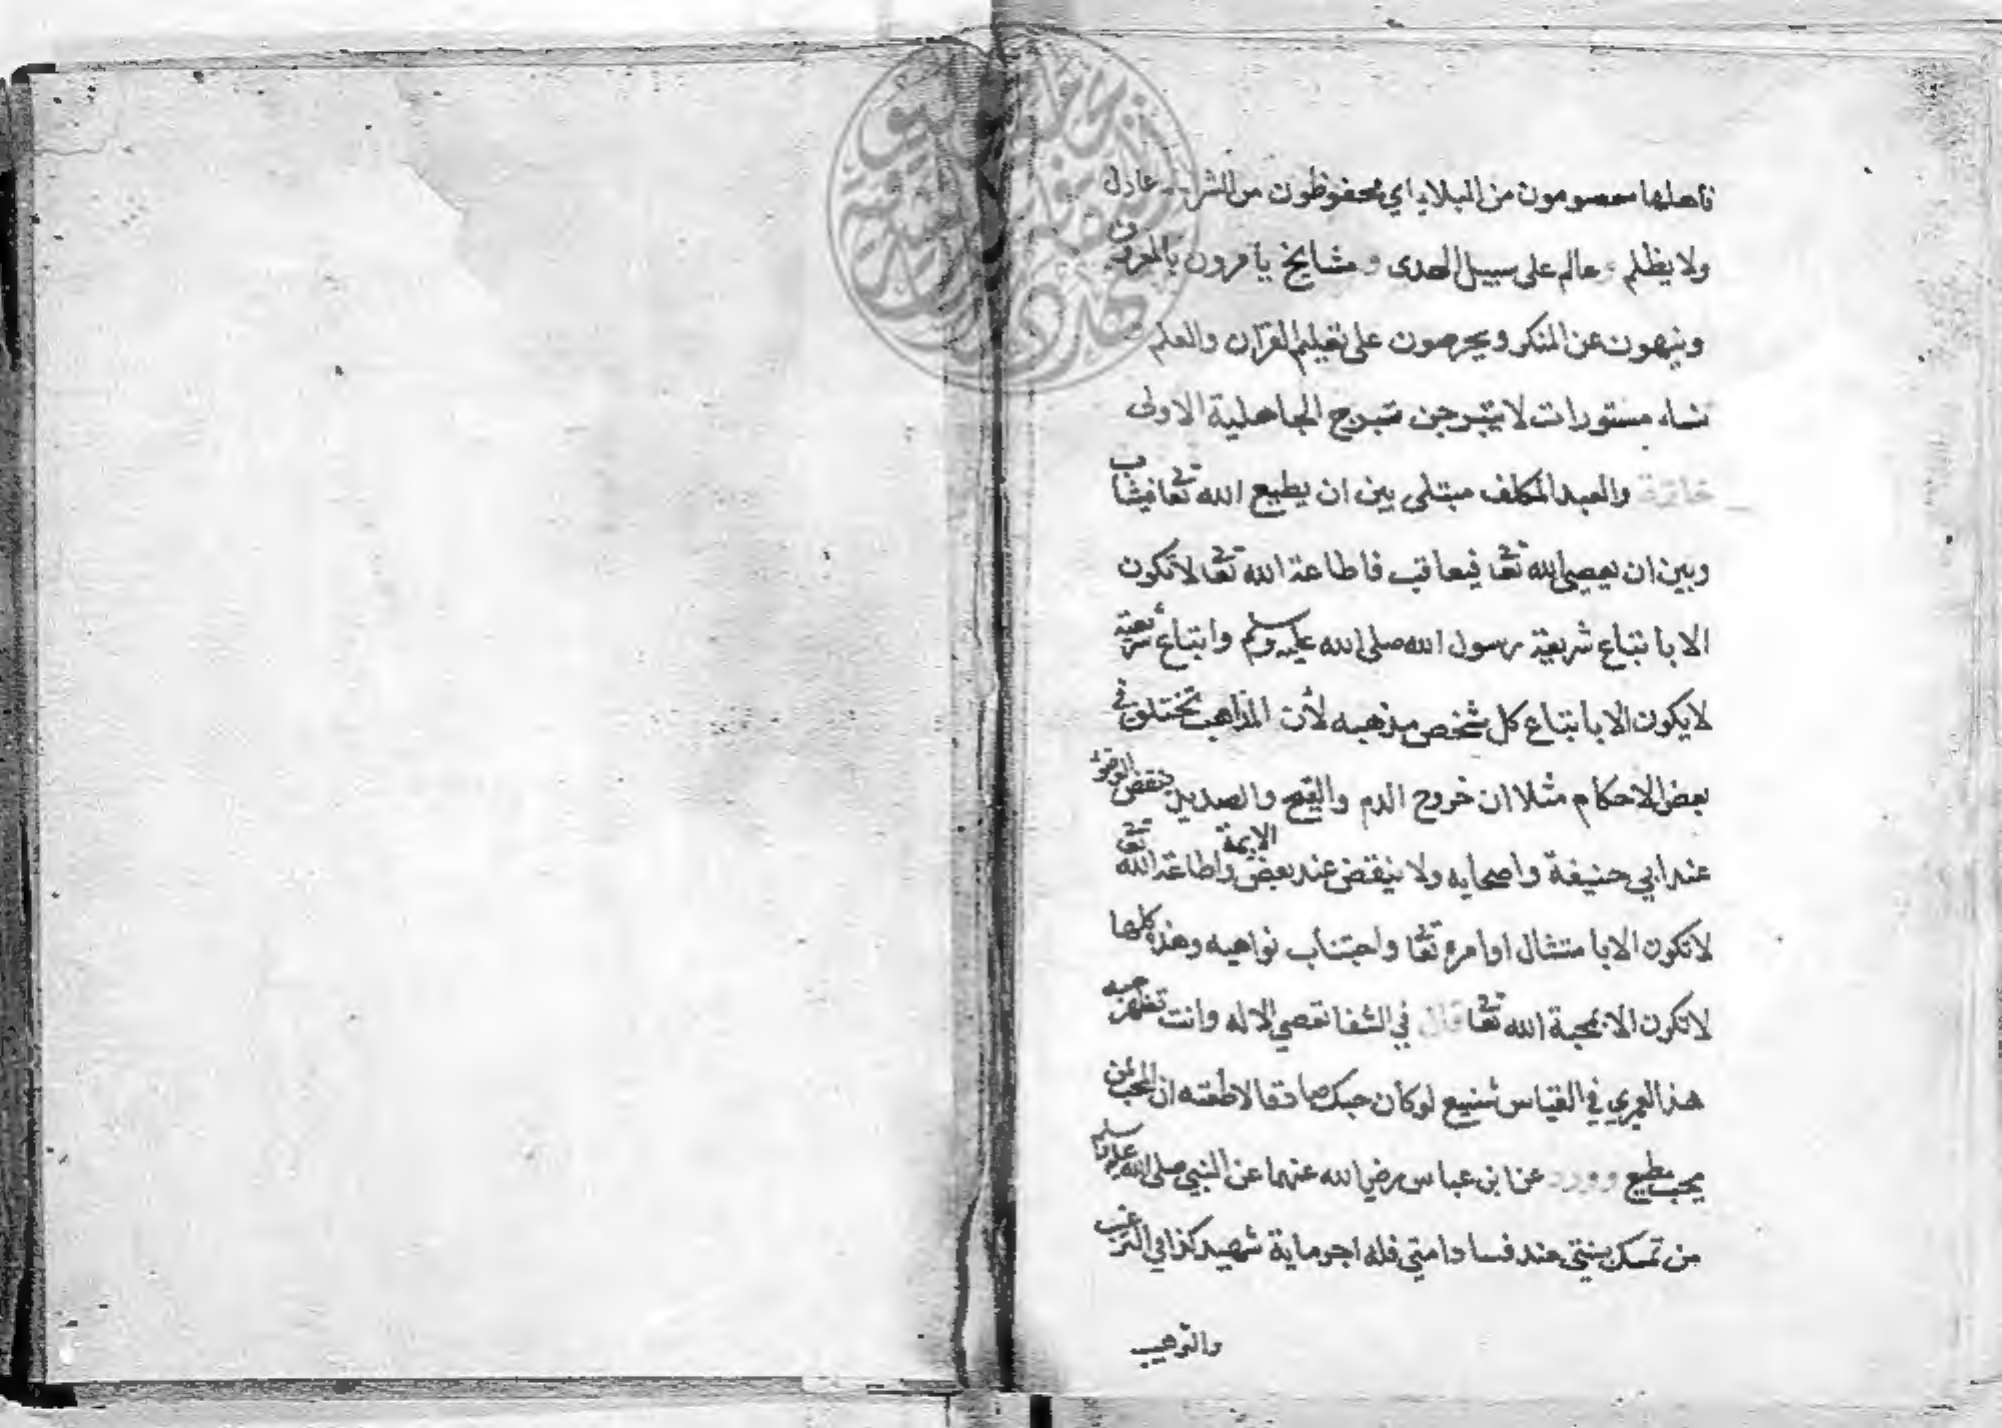 فاهلها معصومون من البلاء اي محفوظون من الشر عادل
ولا يظلم و عالم على سبيل الهدى و مشايخ يأمرون بالمعروف
وينهون عن المنكر ويحرصون على تعليم القرآن والعلم
نساء مستورات لا يتبرجن تبرج الجاهلية الاولى
خاتمة والعبد المكلف مبتلى بين ان يطيع الله تعا فيثاب
وبين ان يعصي الله تعا فيعاقب فاطاعة الله تعا لا تكون
الا باتباع شريعة رسول الله صلى الله عليه وسلم واتباع شريعته
لا يكون الا باتباع كل شخص مذهبه لأن المذاهب تختلف في
بعض الاحكام مثلا ان خروج الدم والقيح والصديد ينقض الوضوء
عند ابي حنيفة واصحابه ولا ينقض عند بعض الايمة واطاعة الله تعا
لا تكون الا بامتثال اوامره تعا واجتناب نواهيه وهذه كلها
لا تكون الا بمحبة الله تعا قال في الشفا تعصي الاله وانت تظهر حبه
هذا لعمري في القياس شنيع لو كان حبك صادقا لاطعته ان المحب لمن
يحب مطيع و ورد عن ابن عباس رضي الله عنهما عن النبي صلى الله عليه وسلم
من تمسك بسنتي عند فساد امتي فله اجر ماية شهيد كذا في الترغيب
والترهيب